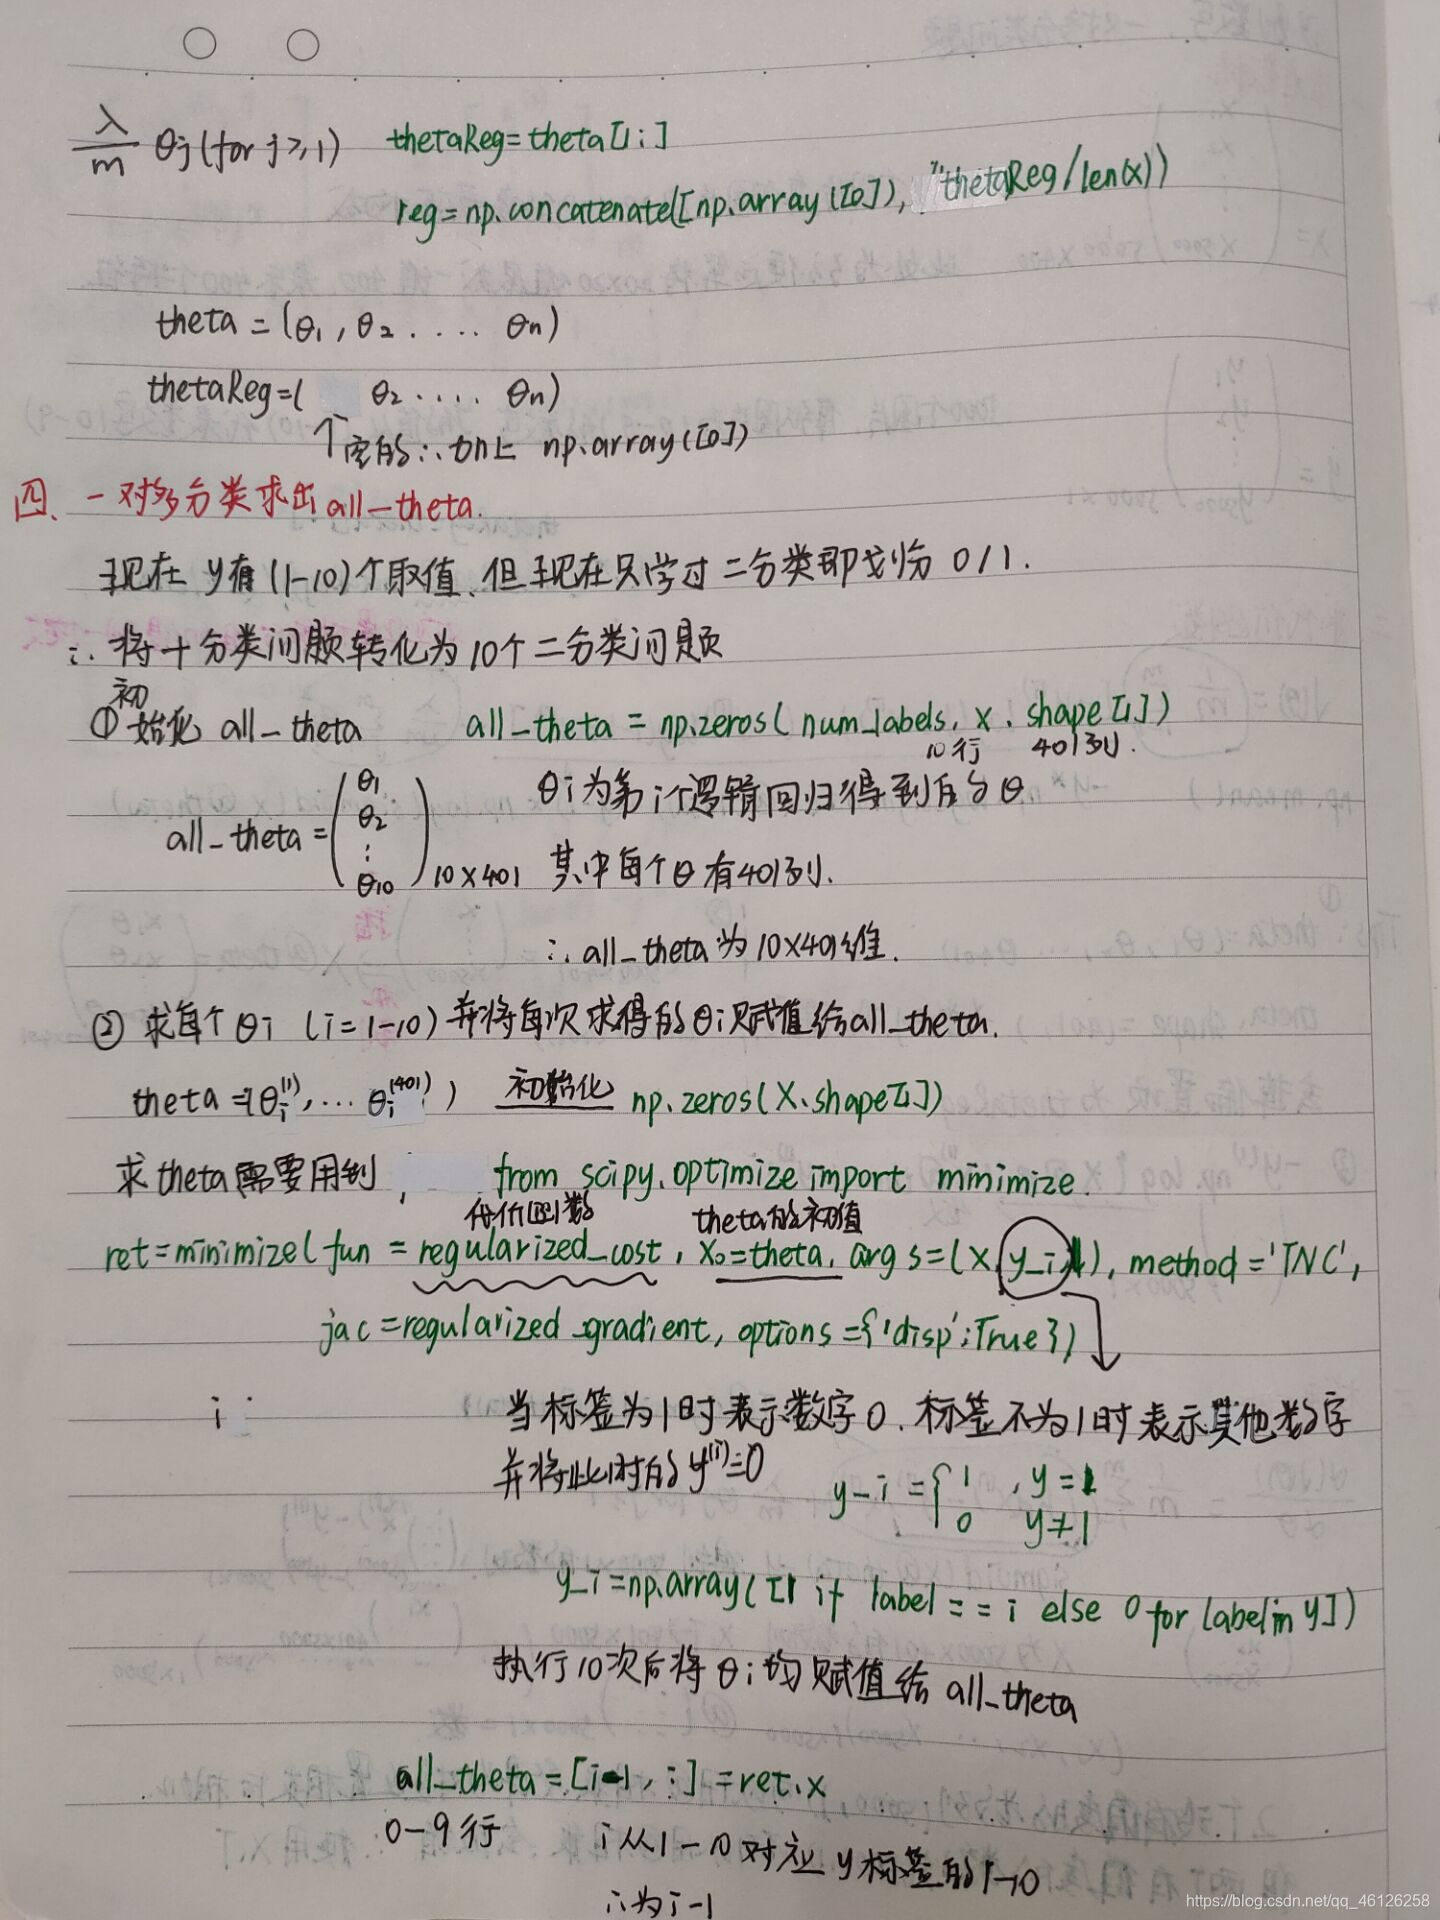 λ/m θj (for j≥1) thetaReg=theta[1:]
reg=np.concatenate([np.array([0]), thetaReg/len(x))
theta = (θ1, θ2 .... θn)
thetaReg=( θ2 .... θn)
↑空的∴加上 np.array([0])
四、一对多分类求出all_theta.
现在 y有(1-10)个取值,但现在只学过二分类即划分 0/1.
∴ 将十分类问题转化为10个二分类问题
①初始化 all_theta all_theta = np.zeros( num_labels, X.shape[1])
10行 401列.
all_theta = (θ1 θ2 ⋮ θ10) 10×401
θi为第i个逻辑回归得到后的θ
其中每个θ有401列.
∴all_theta为10×401维.
② 求每个θi (i=1-10)并将每次求得的θi赋值给all_theta.
theta =(θi^(1), ... θi^(401) ) 初始化 np.zeros(X.shape[1])
求theta需要用到, from scipy.optimize import minimize.
代价函数 theta的初值
ret=minimize( fun = regularized_cost, x0=theta, args=(X, y_i, 1), method='TNC',
jac=regularized_gradient, options={'disp':True})
i 当标签为1时表示数字0.标签不为1时表示其他数字
并将此时的y^(i)=0
y_i = { 1 , y=1
0 y≠1
y_i=np.array([1 if label==i else 0 for label in y])
执行10次后将θi均赋值给all_theta
all_theta=[i-1,:]=ret.x
0-9行 i从1-10对应y标签的1→10
∴为i-1
https://blog.csdn.net/qq_46126258